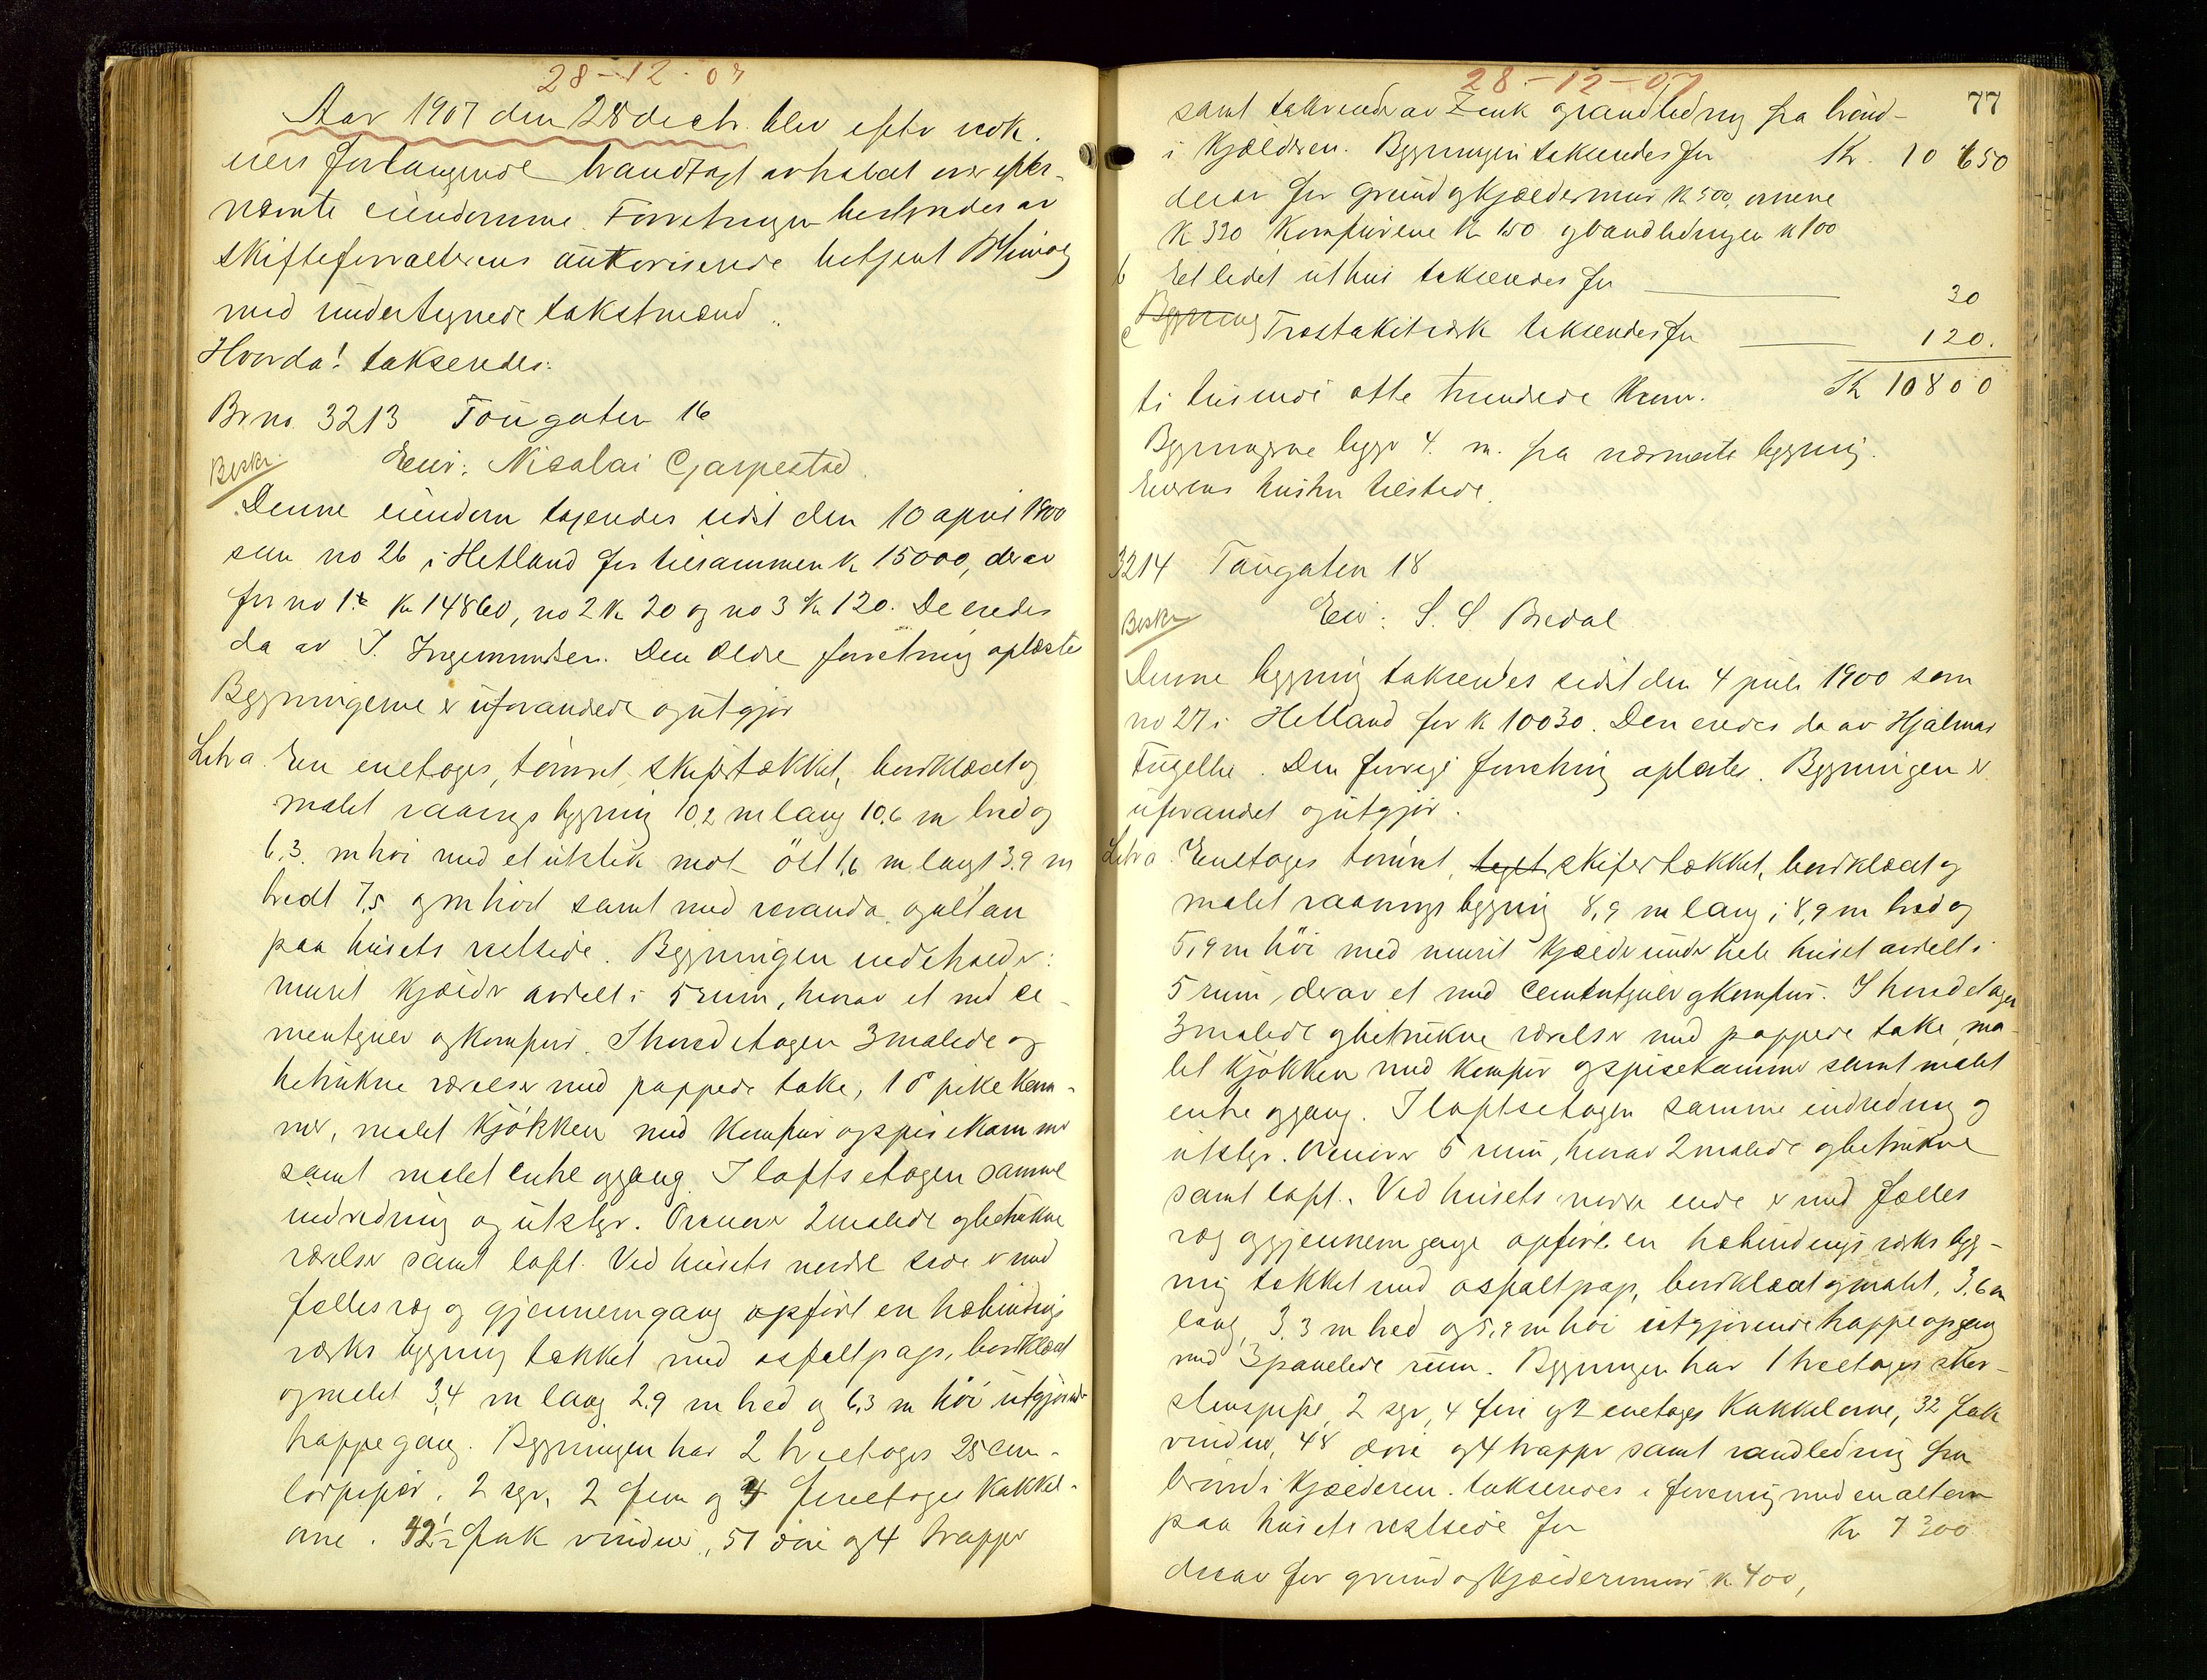 28-12-07
Aar 1907 den 28 decbr. blev efter vedk.
eiers forlangende brandtaxt avholdt over efter-
nævnte eiendomme. Forretningen bestyredes av
skifteforvalterens autoriserede betjent
med undertegnede takstmænd.
Hvorda! takseredes:
Br no. 3213 Tougaten 16
Beskr. Eier: Nicolai Gjarpestad.
Denne eiendom taxeredes sidst den 10 april 1900
som no 26 i Hetland for tilsammen k 15000, derav
for no 1 kr 14860, no 2 k 20 og no 3 kr 120. De eiedes
da av I. Ingemundsen. Den ældre forretning oplæstes
Bygningerne er uforandrede og utgjør
Litr a. En enetages, tømret, skifertækket, bordklædt og
malet vaanings bygning 10,2 m lang 10,6 m bred og
6,3. m høi med et utstik mot øst 1,6 m langt 3,9 m
bredt 7,5 og m høit samt med veranda og altan
paa husets vestside. Bygningen indeholder:
muret kjælder avdelt i 5 rum, hvorav et med ce-
mentgulv og komfur. I hovedetagen 3 malede og
betrukne værelser med pappede take, 1 do pikekam-
mer, malet kjøkken med komfur og spisekammer
samt malet entre og gang. I loftsetagen samme
indredning og utstyr. Ovenover 2 malede og betrukne
værelser samt loft. Ved husets nordre side er med
fælles væg og gjennemgang opført en halvbindings
verks bygning tækket med asfaltpap, bordklædt
og malet 3,4 m lang 2,9 m bred og 6,3 m høi utgjørende
trappegang. Bygningen har 2 treetages 25 cm.
rørpiper, 2 syv, 2 fem og 4 fireetages kakkel-
ovne. 42½ fak vinduer, 51 døre og 4 trapper
28-12-07
77
samt takrender av Zink og vandledning fra brønd-
i kjælderen. Bygningen takseredes for Kr. 10 650
derav for grund og kjældermur k 500, ovnene
k 320 komfurene k 150 og vandledningen k 100
b Et ledet uthus takseredes for 30
c Bygning Træstakitværk takseredes for 120.
ti tusinde otte hundrede kroner. Kr 10800
Bygningerne ligger 4. m. fra nærmeste bygning.
Eierens hustru tilstede.
3214 Tougaten 18
Beskr Eier: S. S. Bredal
Denne bygning takseredes sidst den 4 juli 1900 som
no 27 i Hetland for k 10030. Den eiedes da av Hjalmar
Fugellie. Den forrige forretning oplæstes. Bygningen er
uforandret og utgjør.
Litr a. Enetages tømret, teglt skifertækket, bordklædt og
malet vaanings bygning 8,9 m lang; 8,9 m bred og
5,9 m høi med muret kjælder under hele huset avdelt i
5 rum, derav et med cementgulv og komfur. I hovedetagen
3 malede og betrukne værelser med pappede take, ma-
let kjøkken med komfur og spisekammer samt malet
entre og gang. I loftsetagen samme indredning og
utstyr. Ovenover 5 rum, hvorav 2 malede og betrukne
samt loft. Ved husets nordre ende er med fælles
væg og gjennemgang opført en halvbindings verks byg-
ning tækket med asfaltpap, bordklædt og malet, 3,6 m
lang, 3,3 m bred og 5,9 m høi utgjørende trappeopgang
med 3 panelede rum. Bygningen har 1 treetages skor-
stenspipe, 2 syv, 4 fire og 2 enetages kakkelovne, 32 fak
vinduer, 48 døre og 4 trapper samt vandledning fra
brønd i kjælderen. takseredes i forening med en altan
paa husets vestside for Kr 7300
derav for grund og kjældermur k. 400,